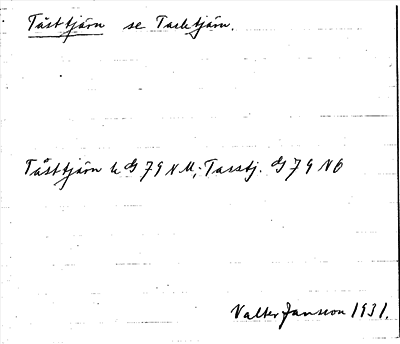 Tåsttjärn se Tacktjärn.
Tåsttjärn h G 79 NM; Tasstj. G 79 NÖ
Valter Jansson 1931.